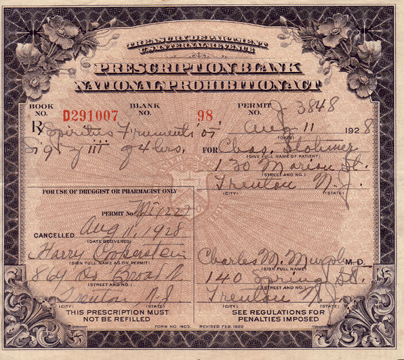 TREASURY DEPARTMENT
U.S. INTERNAL REVENUE
PRESCRIPTION BLANK
NATIONAL PROHIBITION ACT
BOOK NO. D291007 BLANK NO. 98 PERMIT NO. J 3848
Rx Spiritus Frumenti Aug 11 1928
(DATE)
iii 4 hrs. FOR Chas.
(GIVE FULL NAME OF PATIENT)
130 Marion St.
(STREET AND NO.)
Trenton N.J.
(CITY) (STATE)
FOR USE OF DRUGGIST OR PHARMACIST ONLY
PERMIT No.
CANCELLED Aug 11, 1928
(DATE DELIVERED)
Harry
(SIGN FULL NAME AS ON PERMIT)
Broad
(STREET AND NO.)
Trenton N.J.
(CITY) (STATE)
THIS PRESCRIPTION MUST
NOT BE REFILLED
Charles M. M.D.
(SIGN FULL NAME)
140 St.
(STREET AND NO.)
Trenton N.J.
(CITY) (STATE)
SEE REGULATIONS FOR
PENALTIES IMPOSED
FORM NO. 1403 REVISED FEB. 1922